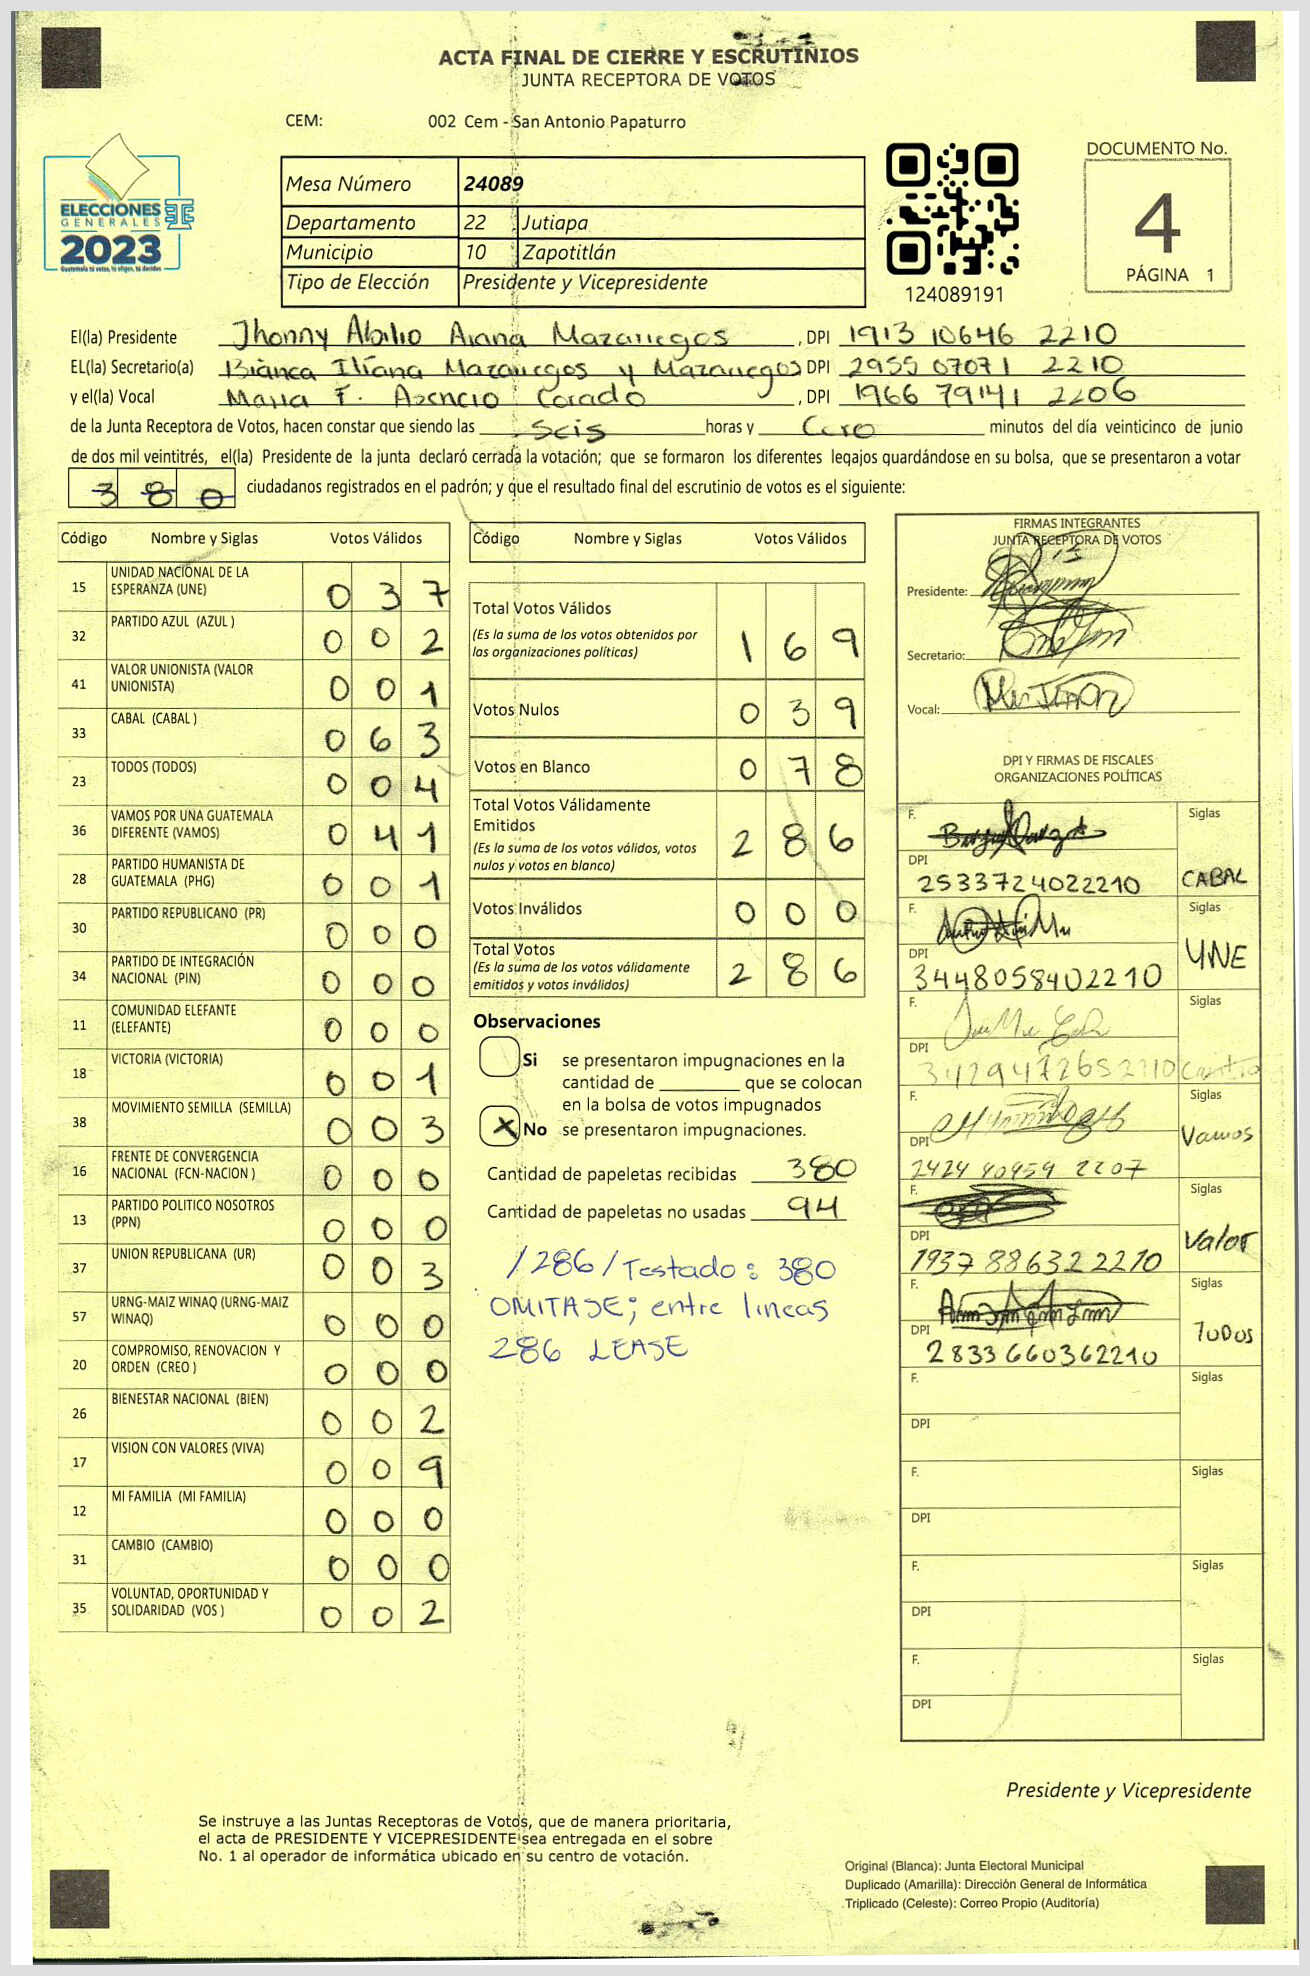 ACTA FINAL DE CIERRE Y ESCRUTINIOS
JUNTA RECEPTORA DE VOTOS
CEM: 002 Cem - San Antonio Papaturro
ELECCIONES
GENERALES
2023
Guatemala tú votas, tú eliges, tú decides
Mesa Número 24089
Departamento 22 Jutiapa
Municipio 10 Zapotitlán
Tipo de Elección Presidente y Vicepresidente
124089191
DOCUMENTO No.
4
PÁGINA 1
El(la) Presidente Jhonny Abilio Arana Mazariegos, DPI 1913 10646 2210
EL(la) Secretario(a) Bianca Iliana Mazariegos y Mazariegos DPI 2955 07071 2210
y el(la) Vocal Maria F. Asencio Corado, DPI 1966 79141 2206
de la Junta Receptora de Votos, hacen constar que siendo las Seis horas y Cero minutos del día veinticinco de junio
de dos mil veintitrés, el(la) Presidente de la junta declaró cerrada la votación; que se formaron los diferentes legajos guardándose en su bolsa, que se presentaron a votar
380 ciudadanos registrados en el padrón; y que el resultado final del escrutinio de votos es el siguiente:
Código Nombre y Siglas Votos Válidos
15 UNIDAD NACIONAL DE LA ESPERANZA (UNE) 0 3 7
32 PARTIDO AZUL (AZUL ) 0 0 2
41 VALOR UNIONISTA (VALOR UNIONISTA) 0 0 1
33 CABAL (CABAL ) 0 6 3
23 TODOS (TODOS) 0 0 4
36 VAMOS POR UNA GUATEMALA DIFERENTE (VAMOS) 0 4 1
28 PARTIDO HUMANISTA DE GUATEMALA (PHG) 0 0 1
30 PARTIDO REPUBLICANO (PR) 0 0 0
34 PARTIDO DE INTEGRACIÓN NACIONAL (PIN) 0 0 0
11 COMUNIDAD ELEFANTE (ELEFANTE) 0 0 0
18 VICTORIA (VICTORIA) 0 0 1
38 MOVIMIENTO SEMILLA (SEMILLA) 0 0 3
16 FRENTE DE CONVERGENCIA NACIONAL (FCN-NACION ) 0 0 0
13 PARTIDO POLITICO NOSOTROS (PPN) 0 0 0
37 UNION REPUBLICANA (UR) 0 0 3
57 URNG-MAIZ WINAQ (URNG-MAIZ WINAQ) 0 0 0
20 COMPROMISO, RENOVACION Y ORDEN (CREO ) 0 0 0
26 BIENESTAR NACIONAL (BIEN) 0 0 2
17 VISION CON VALORES (VIVA) 0 0 9
12 MI FAMILIA (MI FAMILIA) 0 0 0
31 CAMBIO (CAMBIO) 0 0 0
35 VOLUNTAD, OPORTUNIDAD Y SOLIDARIDAD (VOS ) 0 0 2
Código Nombre y Siglas Votos Válidos
Total Votos Válidos 1 6 9
(Es la suma de los votos obtenidos por
las organizaciones políticas)
Votos Nulos 0 3 9
Votos en Blanco 0 7 8
Total Votos Válidamente
Emitidos 2 8 6
(Es la suma de los votos válidos, votos
nulos y votos en blanco)
Votos Inválidos 0 0 0
Total Votos 2 8 6
(Es la suma de los votos válidamente
emitidos y votos inválidos)
Observaciones
Si se presentaron impugnaciones en la
cantidad de ________ que se colocan
en la bolsa de votos impugnados
X No se presentaron impugnaciones.
Cantidad de papeletas recibidas 380
Cantidad de papeletas no usadas 94
/286/Testado: 380
OMITASE; entre lineas
286 LEASE
FIRMAS INTEGRANTES
JUNTA RECEPTORA DE VOTOS
Presidente:
Secretario:
Vocal:
DPI Y FIRMAS DE FISCALES
ORGANIZACIONES POLÍTICAS
F. Siglas
DPI 2533724022210 CABAL
F. Siglas
DPI 3448058402210 UNE
F. Siglas
DPI 3429472652210
F. Siglas
DPI 2424 40959 2207 Vamos
F. Siglas
DPI 1937 88632 2210 Valor
F. Siglas
DPI 2833660362210 TODOS
F. Siglas
DPI
F. Siglas
DPI
F. Siglas
DPI
F. Siglas
DPI
Presidente y Vicepresidente
Se instruye a las Juntas Receptoras de Votos, que de manera prioritaria,
el acta de PRESIDENTE Y VICEPRESIDENTE sea entregada en el sobre
No. 1 al operador de informática ubicado en su centro de votación.
Original (Blanca): Junta Electoral Municipal
Duplicado (Amarilla): Dirección General de Informática
Triplicado (Celeste): Correo Propio (Auditoría)